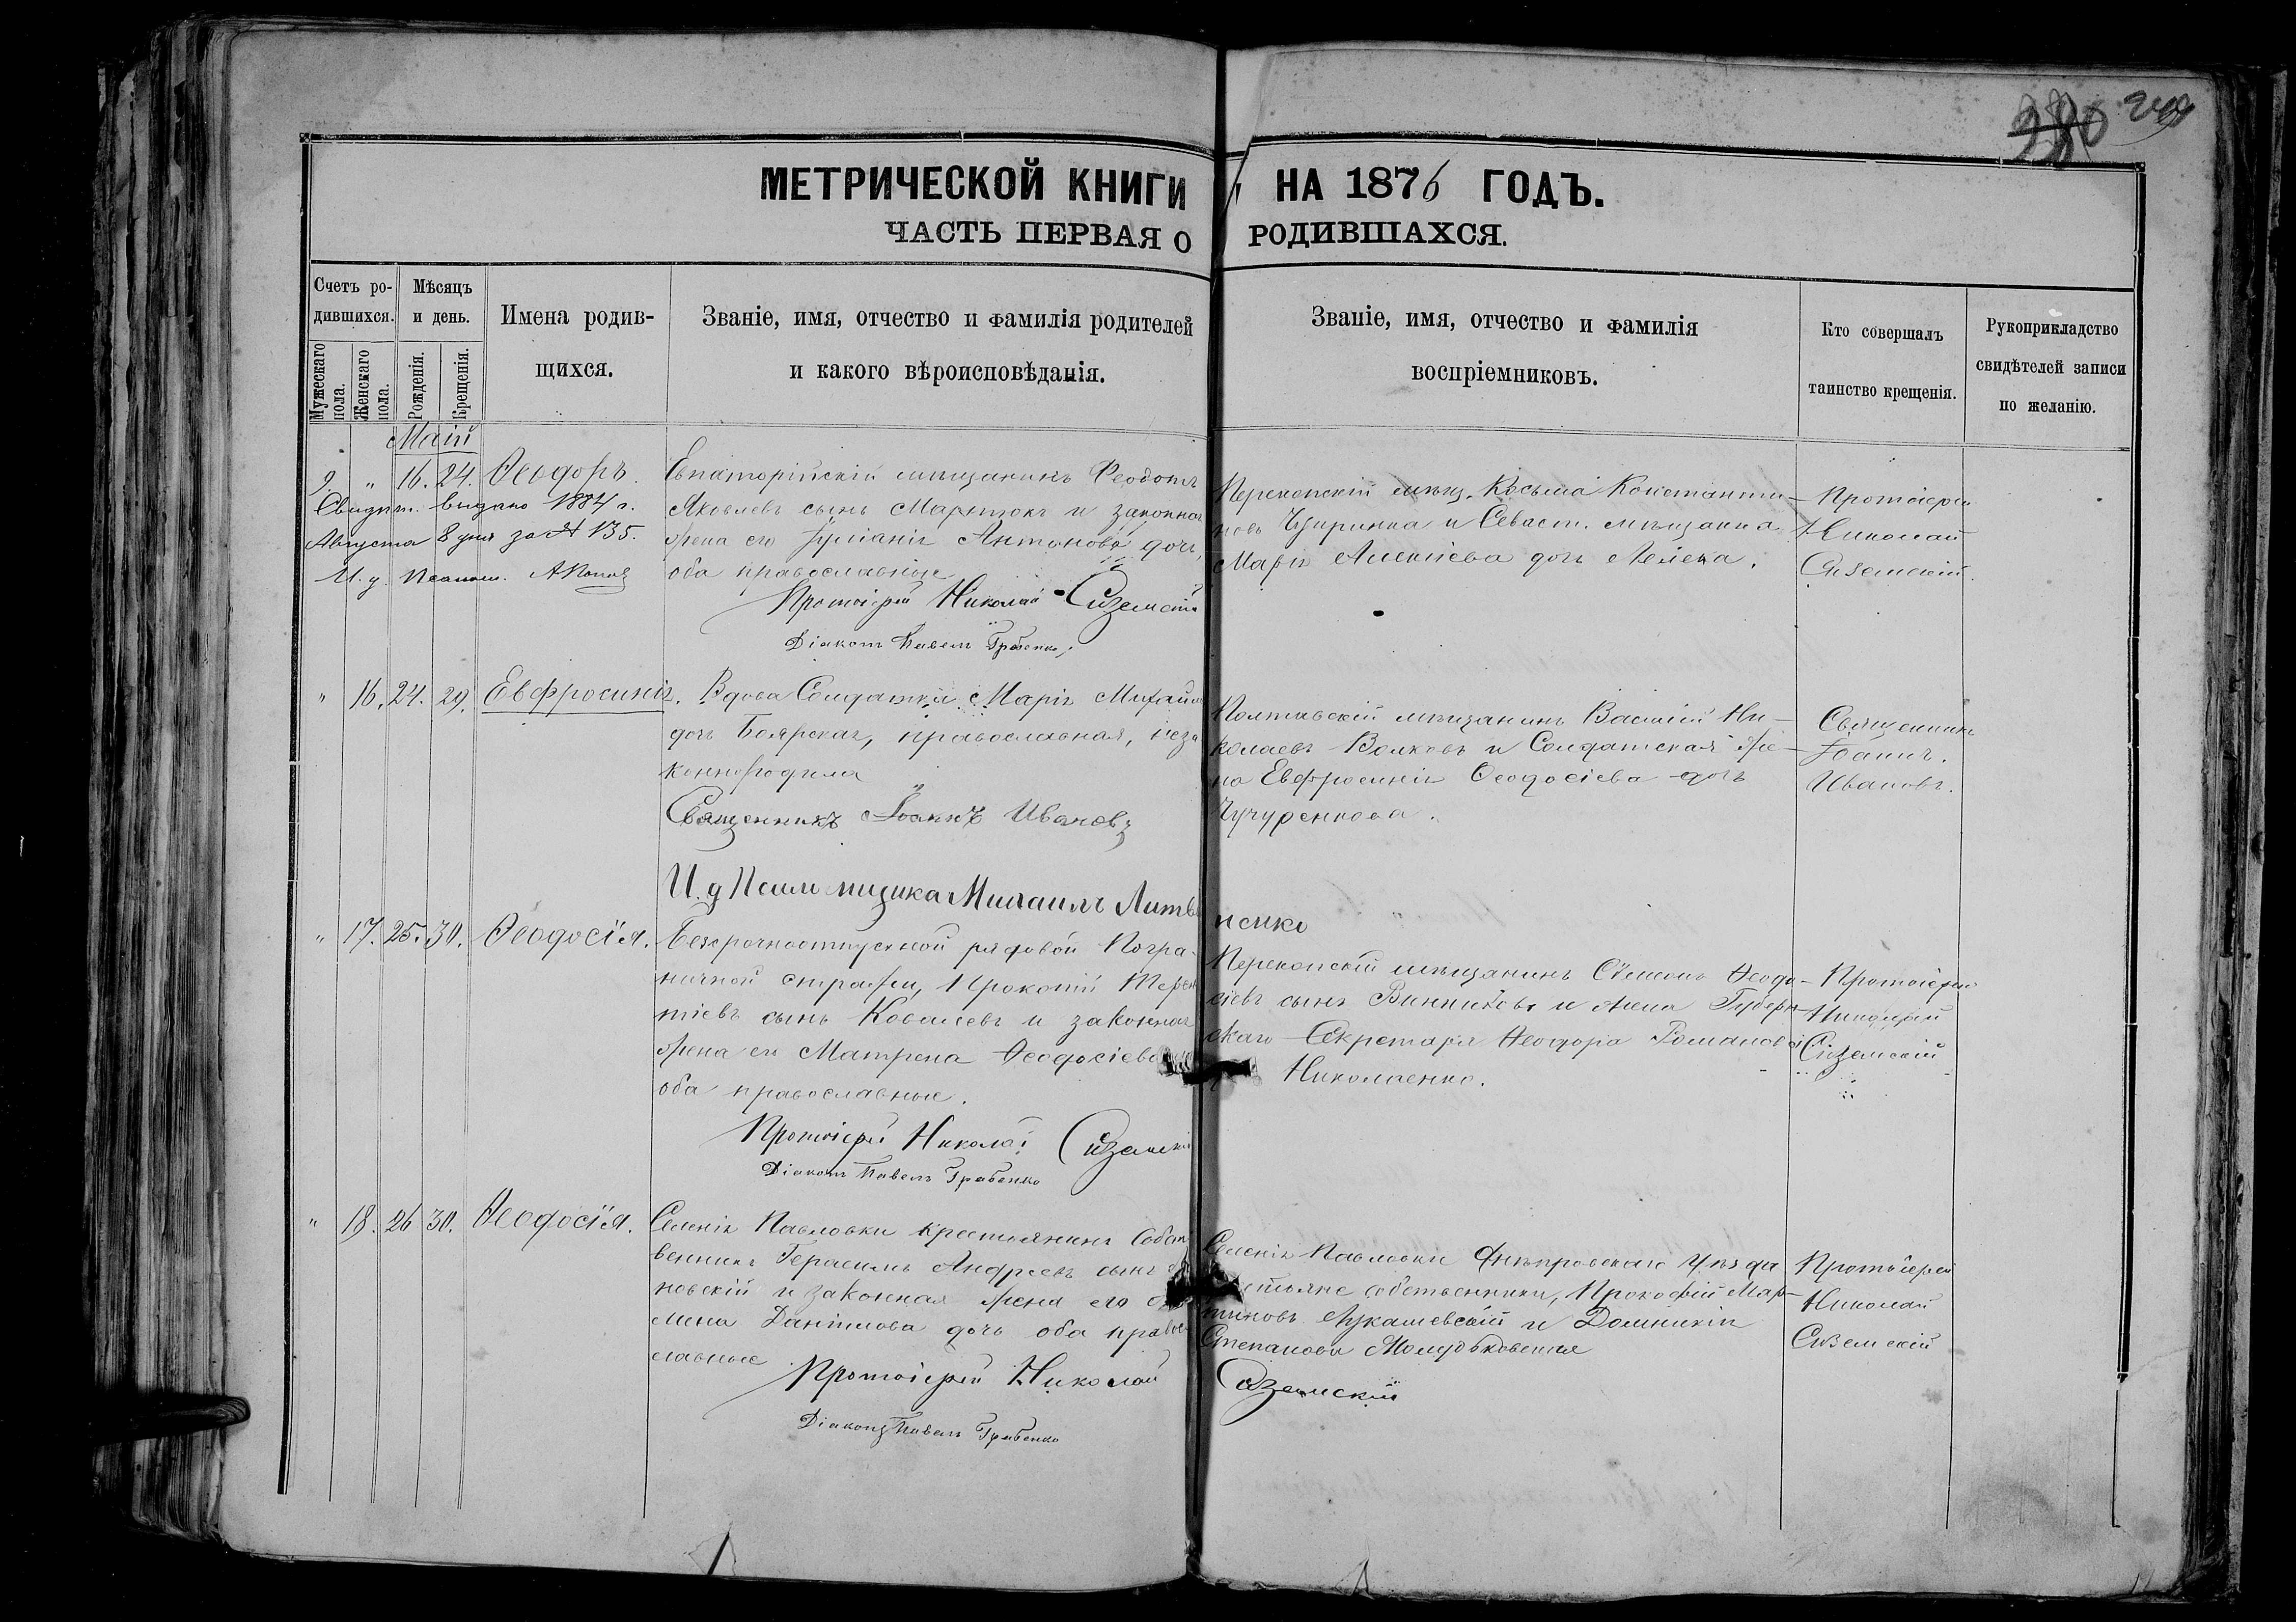 280 249
МЕТРИЧЕСКОЙ КНИГИ НА 1876 ГОДЪ.
ЧАСТЬ ПЕРВАЯ О РОДИВШАХСЯ.
Счетъ ро-
дившихся.
Мужескаго пола.
Женскаго пола.
Мѣсяцъ
и день.
Рожденія.
Крещенія.
Имена родив-
щихся.
Званіе, имя, отчество и фамилія родителей
и какого вѣроисповѣданія.
Званіе, имя, отчество и фамилія
воспріемниковъ.
Кто совершалъ
таинство крещенія.
Рукоприкладство
свидѣтелей записи
по желанію.
Маій
9. " 16. 24. Ѳеодоръ.
Свидѣт. выдано 1884 г.
Августа 8 дня за № 135.
И. д. Псалом. А Попов
Евпаторійскій мѣщанинъ Феодотъ
Яковлевъ сынъ и законная
жена его Антонова дочь,
оба православные
Протоіерей Николай Сиземскій
Діаконъ Павелъ Грабенко
Перекопскій мѣщ. Косьма Константи-
новъ и Севаст. мѣщанка
Марія Алексіева дочь
Протоіерей
Николай
Сиземскій.
" 16. 24. 29. Евфросинія.
Вдова Солдатка Марія Михайл
дочь Боярская, православная, неза
коннорождена
Священникъ Іоаннъ Ивановъ
И. д Псаломщика Михаилъ Литвиненко
Полтавскій мѣщанинъ Василій Ни-
колаевъ Волковъ и Солдатская же-
на Евфросинія Ѳеодосіева дочь
Чучуренкова.
Священникъ
Іоаннъ.
Ивановъ.
" 17. 25. 30. Ѳеодосія.
Безсрочноотпускной рядовой Погра-
ничной стражи, Прокопій Терен
тіевъ сынъ Ковалевъ и законная
жена его Матрена Ѳеодосіева
оба православные.
Протоіерей Николай Сиземскій
Діаконъ Павелъ Грабенко
Перекопскій мѣщанинъ Сѵмеонъ Ѳеодо-
сіевъ сынъ Винниковъ и жена Губерн-
скаго Секретаря Ѳеодора Романова
Николаенко.
Протоіерей
Николай
Сиземскій
" 18. 26 30. Ѳеодосія.
Селенія Павловки крестьянинъ Собст
венникъ Герасимъ Андреевъ сынъ
новскій и законная жена его
Даніилова дочь оба право-
славные
Протоіерей Николай Сиземскій
Діаконъ Павелъ Грабенко
Селенія Павловки Днѣпровскаго Уѣзда
собственники, Прокофій Мар-
тиновъ Лукашевскій и Домникія
Степанова
Протоіерей
Николай
Сиземскій